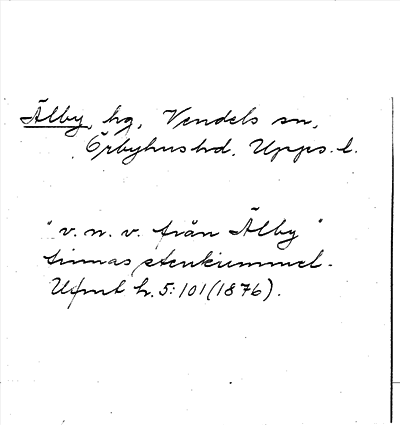 Älby, hg, Vendels sn,
Örbyhus hd. Upps. l.
"v. n. v. från Älby"
finnas stenkummel.
Upmt h. 5:101 (1876).